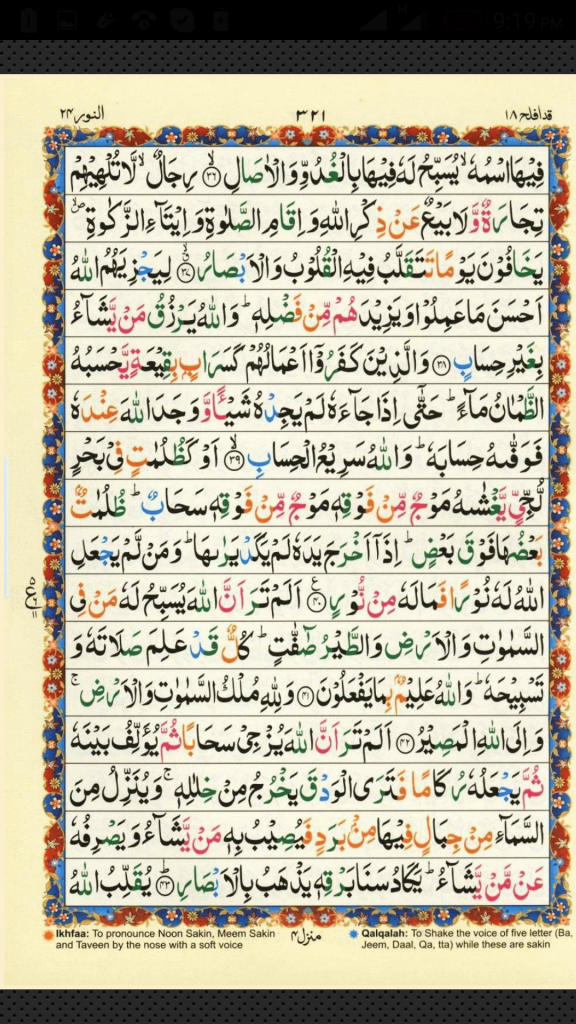 9:19 PM
قد افلح ١٨
٣٢١
النور ٢٤
فِيْهَا اسْمُهٗ ۙ يُسَبِّحُ لَهٗ فِيْهَا بِالْغُدُوِّ وَالْاٰصَالِ ۙ‏﴿۳۶﴾ رِجَالٌ ۙ لَّا تُلْهِيْهِمْ
تِجَارَةٌ وَّلَا بَيْعٌ عَنْ ذِكْرِ اللّٰهِ وَاِقَامِ الصَّلٰوةِ وَاِيْتَآءِ الزَّكٰوةِ ۙ
يَخَافُوْنَ يَوْمًا تَتَقَلَّبُ فِيْهِ الْقُلُوْبُ وَالْاَبْصَارُ ۙ‏﴿۳۷﴾ لِيَجْزِيَهُمُ اللّٰهُ
اَحْسَنَ مَا عَمِلُوْا وَيَزِيْدَهُمْ مِّنْ فَضْلِهٖ ؕ وَاللّٰهُ يَرْزُقُ مَنْ يَّشَآءُ
بِغَيْرِ حِسَابٍ ‏﴿۳۸﴾ وَالَّذِيْنَ كَفَرُوْۤا اَعْمَالُهُمْ كَسَرَابٍۭ بِقِيْعَةٍ يَّحْسَبُهُ
الظَّمْاٰنُ مَآءً ؕ حَتّٰۤى اِذَا جَآءَهٗ لَمْ يَجِدْهُ شَيْـًٔا وَّوَجَدَ اللّٰهَ عِنْدَهٗ
فَوَفّٰىهُ حِسَابَهٗ ؕ وَاللّٰهُ سَرِيْعُ الْحِسَابِ ۙ‏﴿۳۹﴾ اَوْ كَظُلُمٰتٍ فِيْ بَحْرٍ
لُّجِّيٍّ يَّغْشٰىهُ مَوْجٌ مِّنْ فَوْقِهٖ مَوْجٌ مِّنْ فَوْقِهٖ سَحَابٌ ؕ ظُلُمٰتٌۢ
بَعْضُهَا فَوْقَ بَعْضٍ ؕ اِذَاۤ اَخْرَجَ يَدَهٗ لَمْ يَكَدْ يَرٰىهَا ؕ وَمَنْ لَّمْ يَجْعَلِ
اللّٰهُ لَهٗ نُوْرًا فَمَا لَهٗ مِنْ نُّوْرٍ ‏﴿۴۰﴾ اَلَمْ تَرَ اَنَّ اللّٰهَ يُسَبِّحُ لَهٗ مَنْ فِي
السَّمٰوٰتِ وَالْاَرْضِ وَالطَّيْرُ صٰٓفّٰتٍ ؕ كُلٌّ قَدْ عَلِمَ صَلَاتَهٗ وَ
تَسْبِيْحَهٗ ؕ وَاللّٰهُ عَلِيْمٌۢ بِمَا يَفْعَلُوْنَ ‏﴿۴۱﴾ وَلِلّٰهِ مُلْكُ السَّمٰوٰتِ وَالْاَرْضِ ۚ
وَاِلَى اللّٰهِ الْمَصِيْرُ ‏﴿۴۲﴾ اَلَمْ تَرَ اَنَّ اللّٰهَ يُزْجِيْ سَحَابًا ثُمَّ يُؤَلِّفُ بَيْنَهٗ
ثُمَّ يَجْعَلُهٗ رُكَامًا فَتَرَى الْوَدْقَ يَخْرُجُ مِنْ خِلٰلِهٖ ۚ وَيُنَزِّلُ مِنَ
السَّمَآءِ مِنْ جِبَالٍ فِيْهَا مِنْۢ بَرَدٍ فَيُصِيْبُ بِهٖ مَنْ يَّشَآءُ وَيَصْرِفُهٗ
عَنْ مَّنْ يَّشَآءُ ؕ يَكَادُ سَنَا بَرْقِهٖ يَذْهَبُ بِالْاَبْصَارِ ؕ‏﴿۴۳﴾ يُقَلِّبُ اللّٰهُ
منزل ٤
Ikhfaa: To pronounce Noon Sakin, Meem Sakin
and Taveen by the nose with a soft voice
Qalqalah: To Shake the voice of five letter (Ba,
Jeem, Daal, Qa, tta) while these are sakin